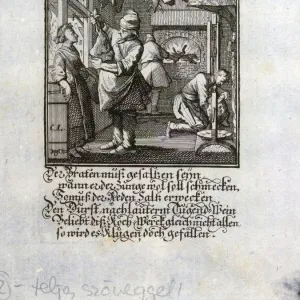 C.L.
Der Braten muß gesaltzen seyn
wann er der Zunge wol soll schmecken,
So muß der Reden Saltz erwecken
Den Durst, nach lauterm Tugend-Wein
Beliebt diß Koch-Werck gleich nicht allen
so wird es Klugen doch gefallen.
- teljes szöveggel!